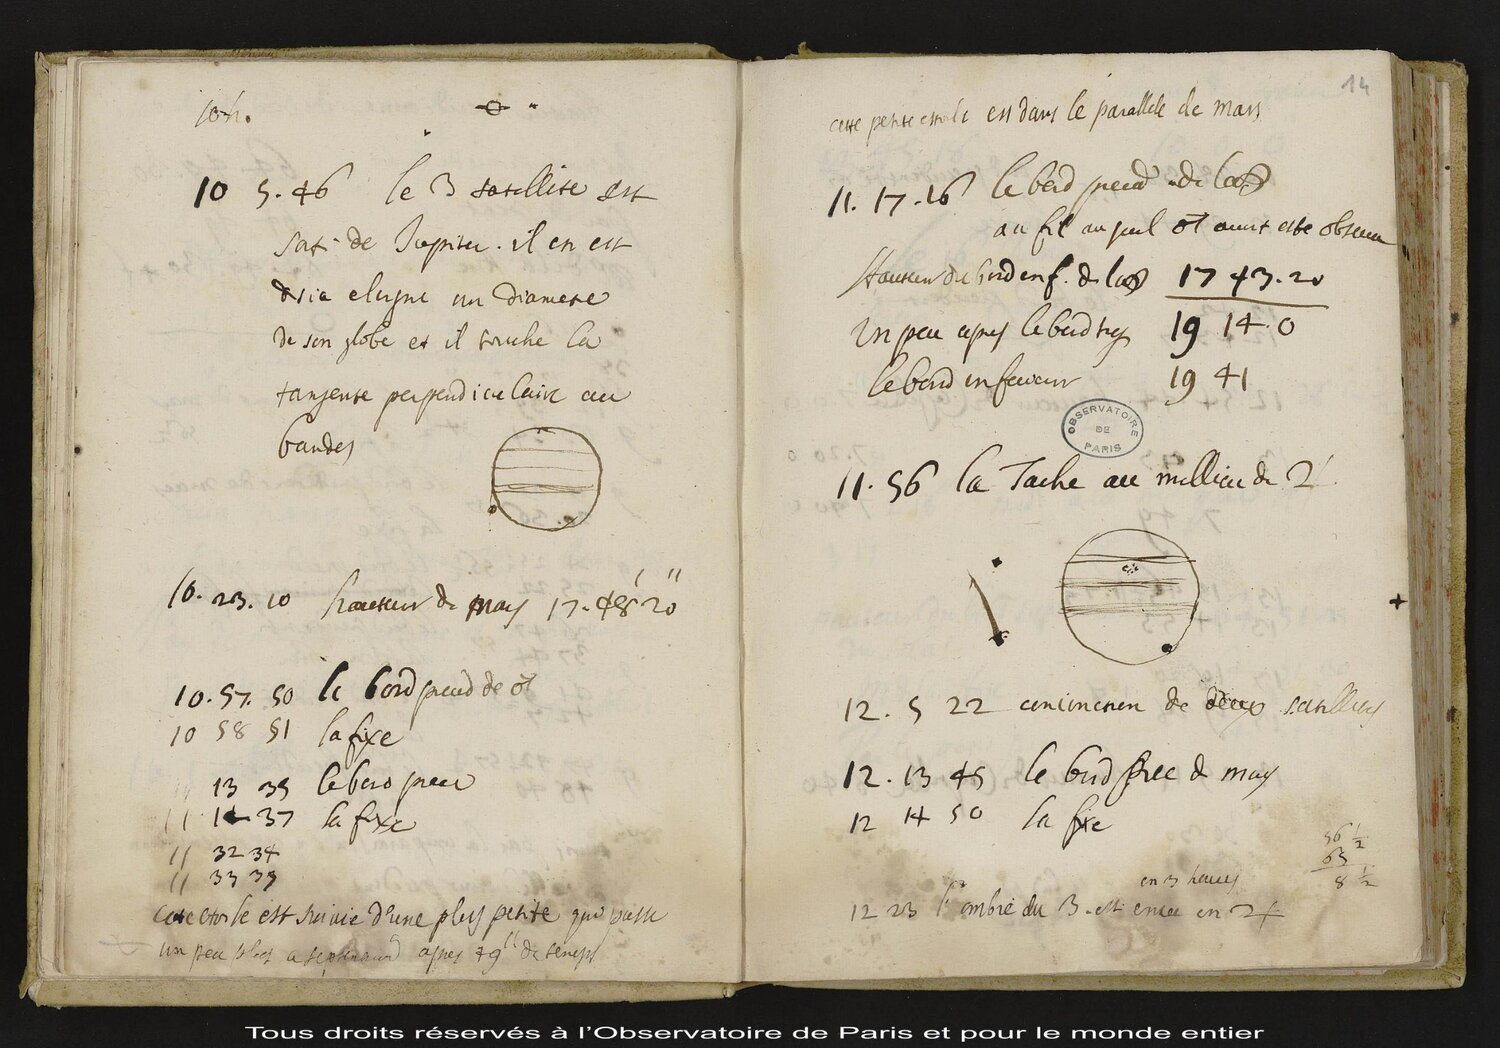 10h.
10 5.46 le 3 satellite est
de Jupiter. il en est
un diametre
de son globe et il touche la
tangente perpendiculaire au
bandes
10. 23. 10 hauteur de mars 17. 48' 20''
10. 57. 50 le bord preced de ♂
10 58 51 la fixe
11 13 35 le bord prece
11 14 37 la fixe
11 32 34
11 33 39
cete etoile est suivie d'une plus petite qui passe
un peu plus a septentrion apres 79'' de temps
14
cette petite estoile est dans le parallele de mars
11. 17. 16 le bord preced de la
au fil au quel ♂ avoit este observe
Hauteur du bord inf. de la 17 43. 20
un peu apres le bord 19 14. 0
le bord inferieur 19 41
OBSERVATOIRE
DE
PARIS
11. 56 la Tache au milieu de ♃
12. 5 22 conionction de deux satellites
12. 13 45 le bord prec de mars
12 14 50 la fixe
56 1/2
65
8 1/2
en 3 heures
12 23 l'ombre du 3. est entree en ♃
Tous droits réservés à l'Observatoire de Paris et pour le monde entier